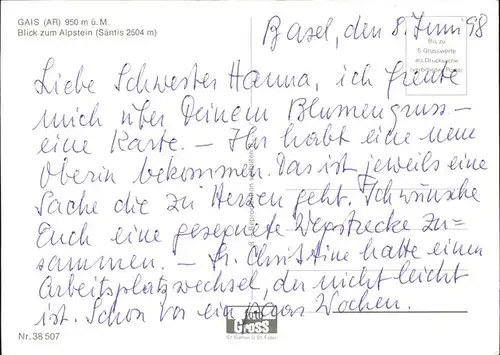 GAIS (AR) 950 m ü. M.
Blick zum Alpstein (Säntis 2504 m)
Basel, den 8. Juni 98
Bis zu
5 Grussworte
als Drucksache
Liebe Schwester Hanna, ich freute
mich über Deinem Blumengruss-
eine Karte. - Ihr habt eine neue
Oberin bekommen. Das ist jeweils eine
Sache die zu Herzen geht. Ich wünsche
Euch eine gesegnete Wegstrecke zu=
sammen. - Sr. Christine hatte einen
Arbeitsplatzwechsel, der nicht leicht
ist. Schon vor ein paar Wochen.
foto
GROSS
St. Gallen
Nr. 38 507